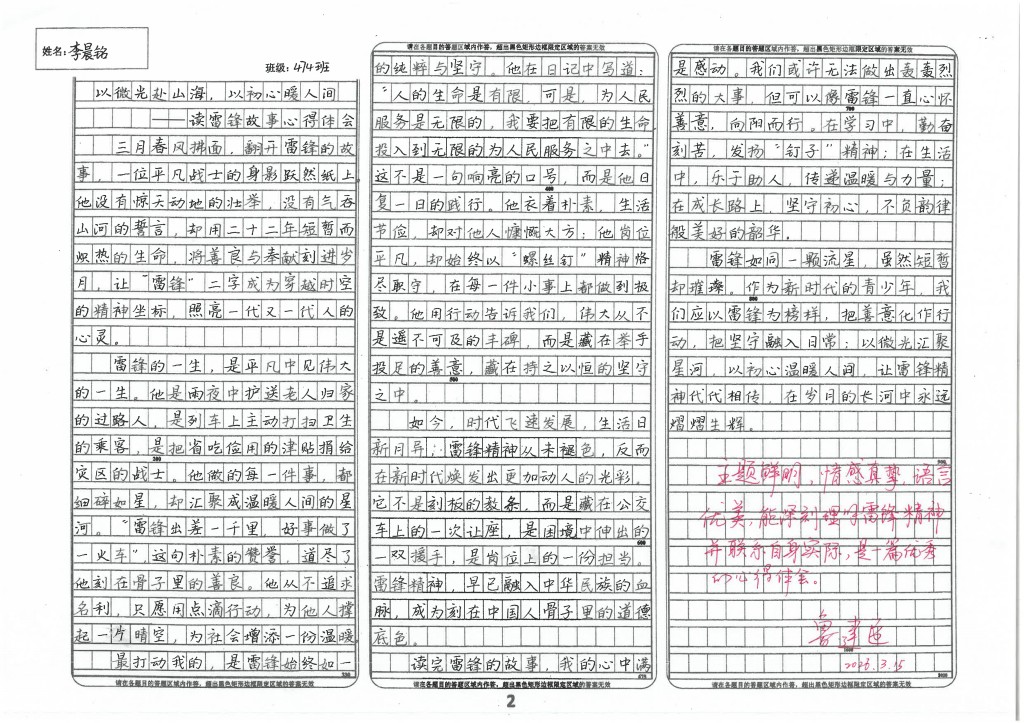 姓名：李晨铭
班级：474班
以微光赴山海，以初心暖人间
——读雷锋故事心得体会
三月春风拂面，翻开雷锋的故
事，一位平凡战士的身影跃然纸上。
他没有惊天动地的壮举，没有气吞
山河的誓言，却用二十二年短暂而
炽热的生命，将善良与奉献刻进岁
月，让“雷锋”二字成为穿越时空
的精神坐标，照亮一代又一代人的
心灵。
雷锋的一生，是平凡中见伟大
的一生。他是雨夜中护送老人归家
的过路人，是列车上主动打扫卫生
的乘客，是把省吃俭用的津贴捐给
200
灾区的战士。他做的每一件事，都
细碎如星，却汇聚成温暖人间的星
河。“雷锋出差一千里，好事做了
一火车”，这句朴素的赞誉，道尽了
他刻在骨子里的善良。他从不追求
名利，只愿用点滴行动，为他人撑
起一片晴空，为社会增添一份温暖。
最打动我的，是雷锋始终如一
请在各题目的答题区域内作答，超出黑色矩形边框限定区域的答案无效
请在各题目的答题区域内作答，超出黑色矩形边框限定区域的答案无效
的纯粹与坚守。他在日记中写道：
“人的生命是有限，可是，为人民
服务是无限的，我要把有限的生命，
投入到无限的为人民服务之中去。”
这不是一句响亮的口号，而是他日
400
复一日的践行。他衣着朴素，生活
节俭，却对他人慷慨大方；他岗位
平凡，却始终以“螺丝钉”精神恪
尽职守，在每一件小事上都做到极
致。他用行动告诉我们，伟大从不
是遥不可及的丰碑，而是藏在举手
投足的善意，藏在持之以恒的坚守
500
之中。
如今，时代飞速发展，生活日
新月异；雷锋精神从未褪色，反而
在新时代焕发出更加动人的光彩。
它不是刻板的教条，而是藏在公交
车上的一次让座，是困境中伸出的
600
一双援手，是岗位上的一份担当。
雷锋精神，早已融入中华民族的血
脉，成为刻在中国人骨子里的道德
底色。
读完雷锋的故事，我的心中满
请在各题目的答题区域内作答，超出黑色矩形边框限定区域的答案无效
请在各题目的答题区域内作答，超出黑色矩形边框限定区域的答案无效
是感动。我们或许无法做出轰轰烈
烈的大事，但可以像雷锋一直心怀
700
善意，向阳而行。在学习中，勤奋
刻苦，发扬“钉子”精神；在生活
中，乐于助人，传递温暖与力量；
在成长路上，坚守初心，不负韵律
般美好的韶华。
雷锋如同一颗流星，虽然短暂
却璀璨。作为新时代的青少年，我
800
们应以雷锋为榜样，把善意化作行
动，把坚守融入日常；以微光汇聚
星河，以初心温暖人间，让雷锋精
神代代相传，在岁月的长河中永远
熠熠生辉。
主题鲜明，情感真挚，语言
优美，能深刻理解雷锋精神
并联系自身实际，是一篇优秀
的心得体会。
2026.3.15
请在各题目的答题区域内作答，超出黑色矩形边框限定区域的答案无效
2